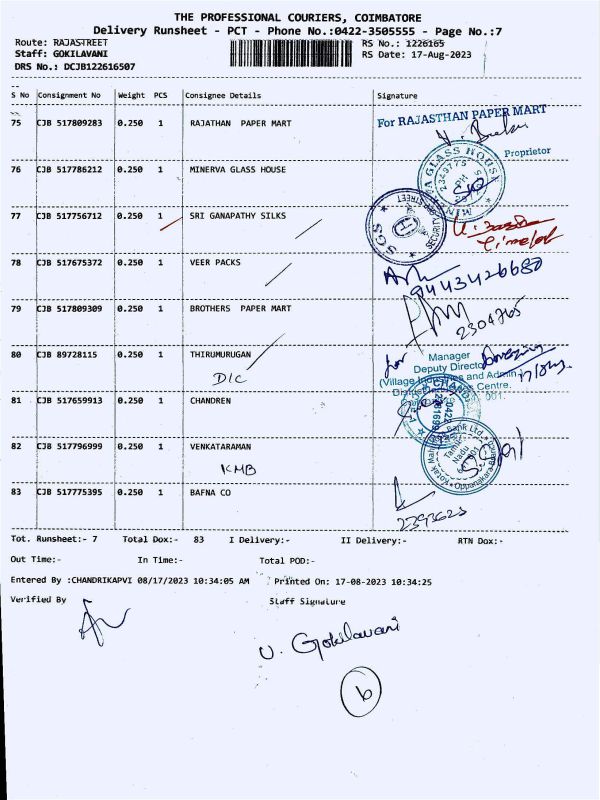 THE PROFESSIONAL COURIERS, COIMBATORE
Delivery Runsheet - PCT - Phone No.:0422-3505555 - Page No.:7
Route: RAJASTREET RS No.: 1226165
Staff: GOKILAVANI RS Date: 17-Aug-2023
DRS No.: DCJB122616507
S No Consignment No Weight PCS Consignee Details Signature
75 CJB 517809283 0.250 1 RAJATHAN PAPER MART For RAJASTHAN PAPER MART
Proprietor
76 CJB 517786212 0.250 1 MINERVA GLASS HOUSE
MINERVA GLASS HOUSE
77 CJB 517756712 0.250 1 SRI GANAPATHY SILKS
SGS
SECURITY
78 CJB 517675372 0.250 1 VEER PACKS
9443426680
79 CJB 517809309 0.250 1 BROTHERS PAPER MART
2304765
80 CJB 89728115 0.250 1 THIRUMURUGAN for Manager
DIC
Deputy Director
(Village Industries and Admin
Centre.
81 CJB 517659913 0.250 1 CHANDREN
82 CJB 517796999 0.250 1 VENKATARAMAN
KMB
Kotak Mahindra Bank Ltd.
Tamil
Nadu
Oppanakara
83 CJB 517775395 0.250 1 BAFNA CO
2393625
Tot. Runsheet:- 7 Total Dox:- 83 I Delivery:- II Delivery:- RTN Dox:-
Out Time:- In Time:- Total POD:-
Entered By :CHANDRIKAPVI 08/17/2023 10:34:05 AM Printed On: 17-08-2023 10:34:25
Verified By Staff Signature
V. Gokilavani
b